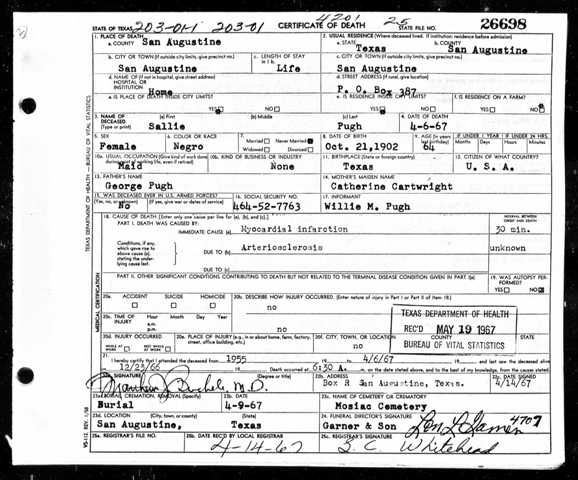 STATE OF TEXAS 203-01-1 203-01 CERTIFICATE OF DEATH 4201 25 STATE FILE NO. 26698
1. PLACE OF DEATH
a. COUNTY San Augustine
2. USUAL RESIDENCE (Where deceased lived. If institution: residence before admission)
a. STATE Texas b. COUNTY San Augustine
b. CITY OR TOWN (If outside city limits, give precinct no.) San Augustine
c. LENGTH OF STAY in 1 b. Life
c. CITY OR TOWN (If outside city limits, give precinct no.) San Augustine
d. NAME OF (If not in hospital, give street address) HOSPITAL OR INSTITUTION Home
d. STREET ADDRESS (If rural, give location) P. O. Box 387
e. IS PLACE OF DEATH INSIDE CITY LIMITS? YES NO
e. IS RESIDENCE INSIDE CITY LIMITS? YES NO
f. IS RESIDENCE ON A FARM? YES NO
3. NAME OF DECEASED (Type or print) (a) First Sallie (b) Middle (c) Last Pugh
4. DATE OF DEATH 4-6-67
5. SEX Female
6. COLOR OR RACE Negro
7. Married Never Married Widowed Divorced
8. DATE OF BIRTH Oct. 21,1902
9. AGE (In years last birthday) 64
IF UNDER 1 YEAR Months Days IF UNDER 24 HRS. Hours Minutes
10a. USUAL OCCUPATION (Give kind of work done during most of working life, even if retired) Maid
10b. KIND OF BUSINESS OR INDUSTRY None
11. BIRTHPLACE (State or foreign country) Texas
12. CITIZEN OF WHAT COUNTRY? U. S. A.
13. FATHER'S NAME George Pugh
14. MOTHER'S MAIDEN NAME Catherine Cartwright
15. WAS DECEASED EVER IN U.S. ARMED FORCES? (If yes, give war or dates of service) No
16. SOCIAL SECURITY NO. 464-52-7763
17. INFORMANT Willie M. Pugh
18. CAUSE OF DEATH [Enter only one cause per line for (a), (b), and (c).]
INTERVAL BETWEEN ONSET AND DEATH
PART I. DEATH WAS CAUSED BY:
IMMEDIATE CAUSE (a) Myocardial infarction 30 min.
Conditions, if any, which gave rise to above cause (a), stating the underlying cause last.
DUE TO (b) Arteriosclerosis unknown
DUE TO (c)
PART II. OTHER SIGNIFICANT CONDITIONS CONTRIBUTING TO DEATH BUT NOT RELATED TO THE TERMINAL DISEASE CONDITION GIVEN IN PART I(a)
19. WAS AUTOPSY PERFORMED? YES NO
20a. ACCIDENT SUICIDE HOMICIDE
20b. DESCRIBE HOW INJURY OCCURRED. (Enter nature of injury in Part I or Part II of item 18.) no
20c. TIME OF INJURY Hour Month Day Year a.m. p.m. no
TEXAS DEPARTMENT OF HEALTH
REC'D MAY 19 1967
BUREAU OF VITAL STATISTICS
20d. INJURY OCCURRED WHILE AT WORK NOT WHILE AT WORK
20e. PLACE OF INJURY (e.g., in or about home, farm, factory, street, office building, etc.)
20f. CITY, TOWN, OR LOCATION COUNTY STATE
no
21. I hereby certify that I attended the deceased from 1955 19 to 4/6/67 19 and last saw the deceased alive on
12/23/66 Death occurred at 6:30 A. m., on the date stated above, and to the best of my knowledge, from the causes stated.
22a. SIGNATURE (Degree or title) M.D.
22b. ADDRESS Box R San Augustine, Texas.
22c. DATE SIGNED 4/14/67
23a. BURIAL, CREMATION, REMOVAL (Specify) Burial
23b. DATE 4-9-67
23c. NAME OF CEMETERY OR CREMATORY Mosiac Cemetery
23d. LOCATION (City, town, or county) (State) San Augustine, Texas
24. FUNERAL DIRECTOR'S SIGNATURE Garner & Son 4707
25a. REGISTRAR'S FILE NO.
25b. DATE REC'D BY LOCAL REGISTRAR 4-14-67
25c. REGISTRAR'S SIGNATURE S. C. Whitehead
TEXAS DEPARTMENT OF HEALTH — BUREAU OF VITAL STATISTICS
MEDICAL CERTIFICATION